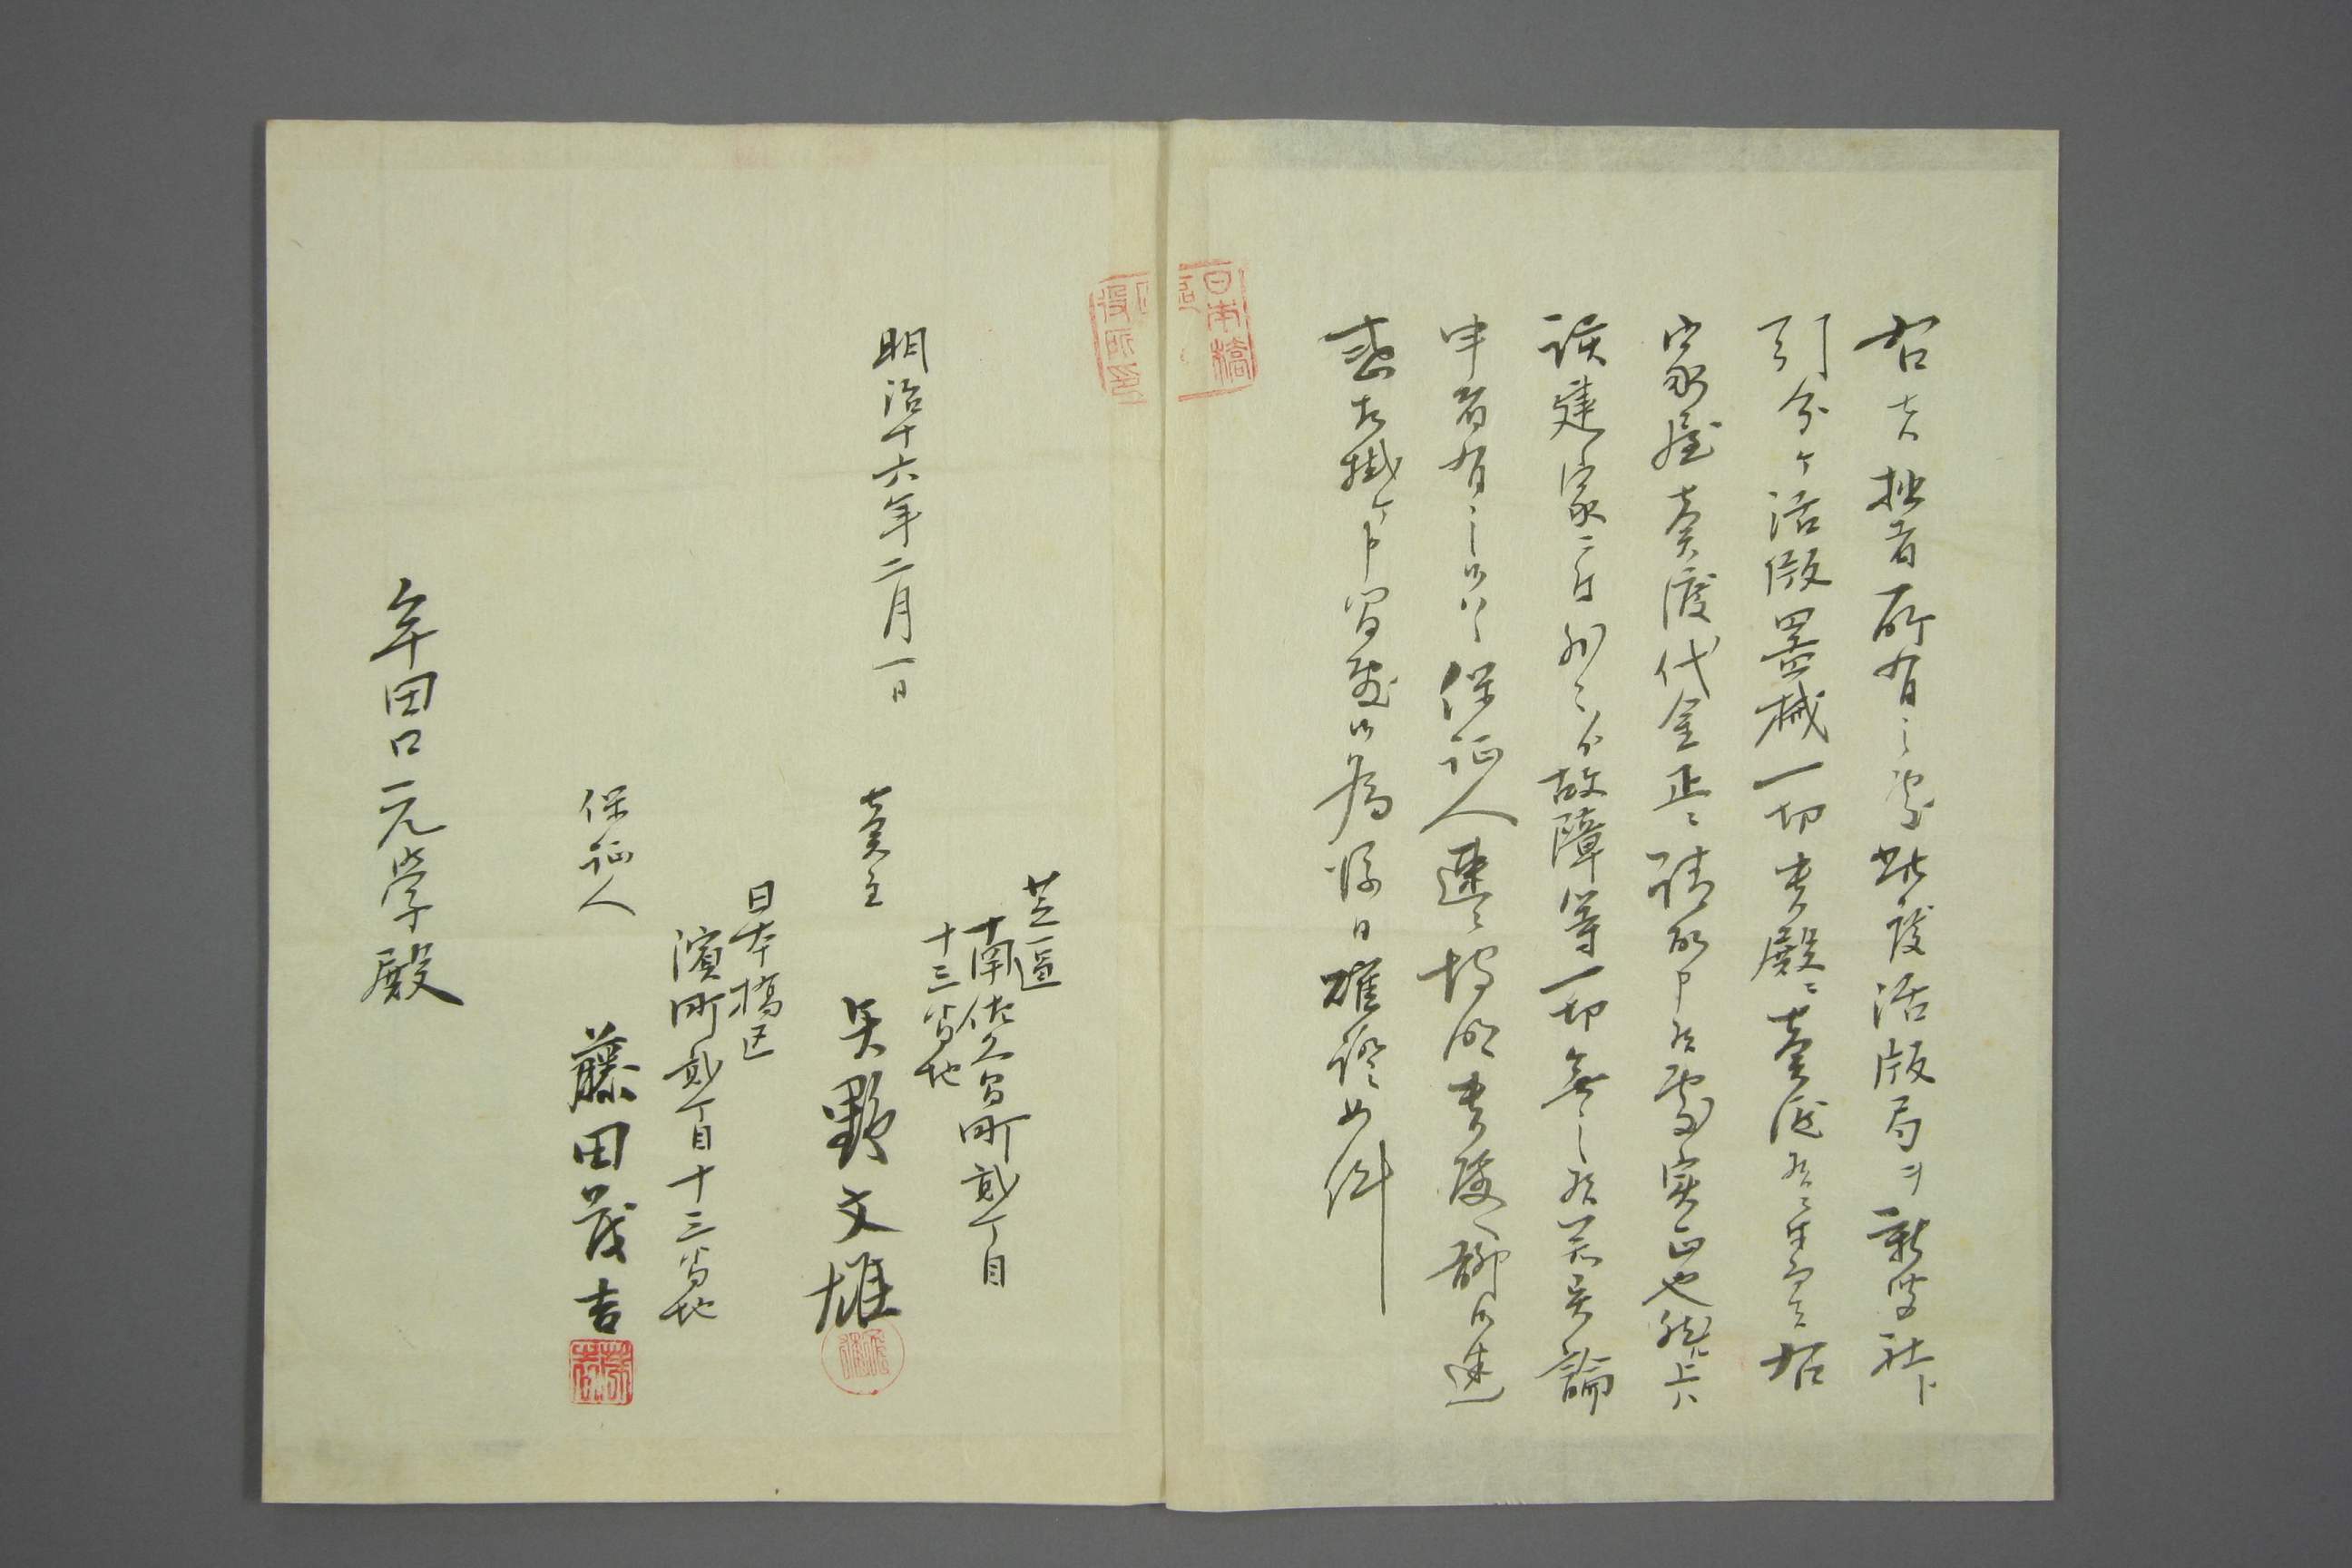 右者拙者所有之處此度活版局ヲ新聞社ト
引分ケ活版器械一切貴殿ニ賣渡
家屋賣渡代金正ニ請取申候處実正也然ル上ハ
該建家ニ付外ヨリ故障等一切無之候若異論
申者有之候ハヽ保証人速ニ埒明貴殿ヘ聊御迷
惑相掛ケ申間敷候為後日確證如件
明治十六年二月一日
芝區
南佐久間町貳丁目
十三番地
賣主
矢野文雄
日本橋区
濱町貳丁目十三番地
保証人
藤田茂吉
牟田口元學殿